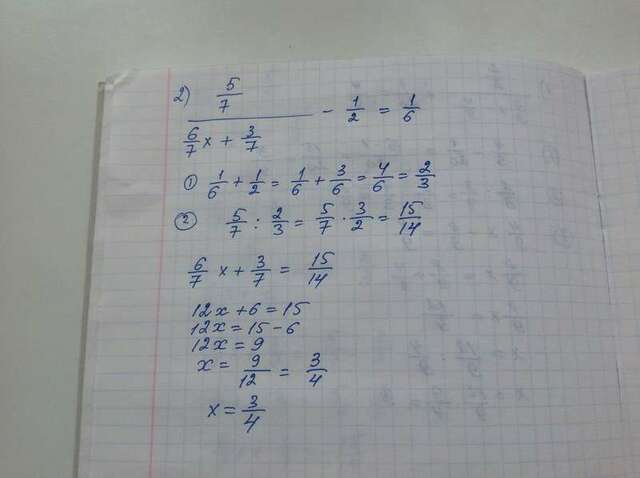 2) (5/7)/(6/7 x + 3/7) - 1/2 = 1/6
① 1/6 + 1/2 = 1/6 + 3/6 = 4/6 = 2/3
② 5/7 : 2/3 = 5/7 · 3/2 = 15/14
6/7 x + 3/7 = 15/14
12x + 6 = 15
12x = 15 - 6
12x = 9
x = 9/12 = 3/4
x = 3/4